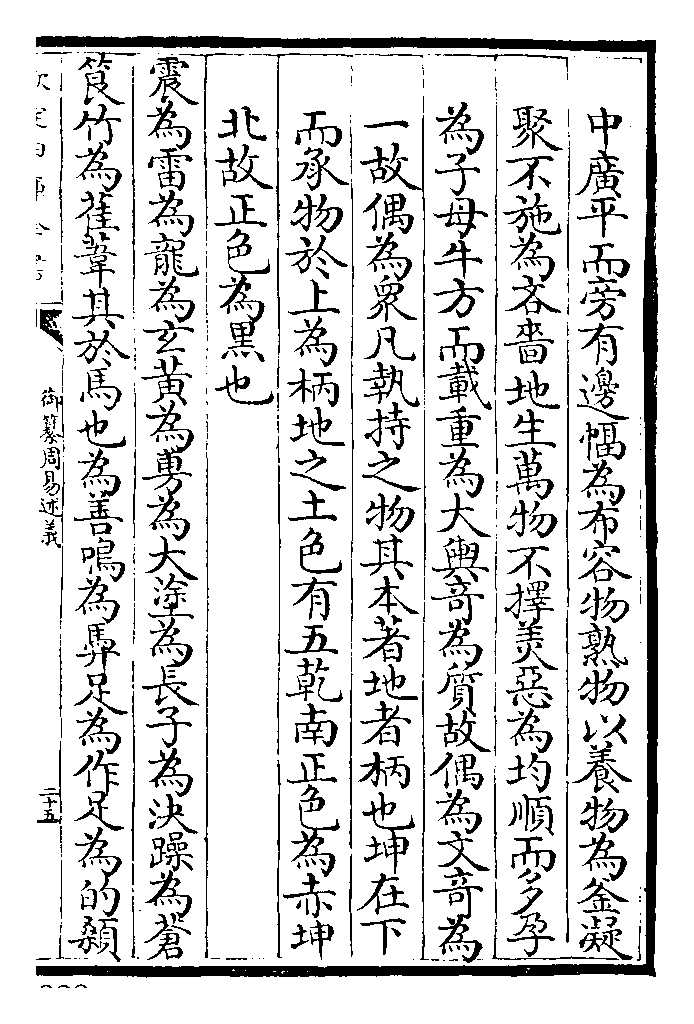 中廣平而旁有邊幅為布容物熟物以養物為釜凝
聚不施為吝嗇地生萬物不擇美惡為均順而多孕
為子母牛方而載重為大輿竒為質故偶為文竒為
一故偶為衆凡執持之物其本著地者柄也坤在下
而承物於上為柄地之土色有五乾南正色為赤坤
北故正色為黒也
震為雷為龍為玄黃為旉為大塗為長子為決躁為蒼
筤竹為萑葦其於馬也為善鳴為馵足為作足為的顙
御纂周易述義
二十五